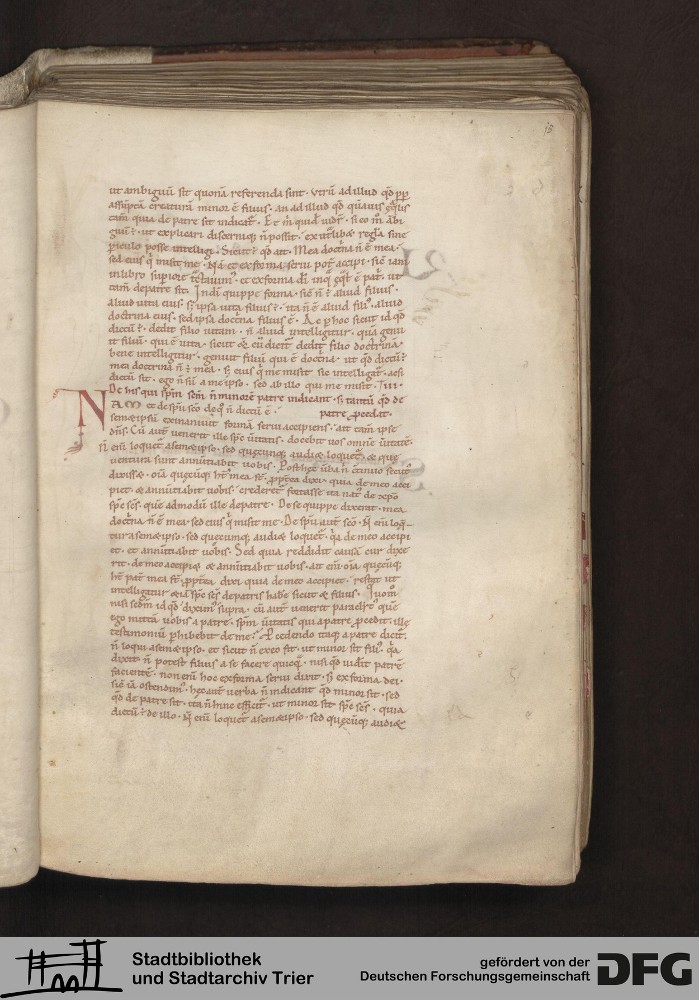 15
ut ambiguū sit quonā referenda sint · utrū ad illud qd̄ ꝓp̄
assūptā creaturā minor ē filius · an ad illud qd̄ quāuis ęq̄lis
tam̄ quia de patre sit indicat̄ · Et m̄ quid̄ uidr̄ · si eo m̄ ābi
guū ē · ut explicari discerniq; n̄ possit · ex utralibæ regl̄a sine
ꝑiculo posse intellegi · Sicut ē qd̄ ait · Mea doctᵃna n̄ ē mea ·
sed eius q̄ misit me · Nā et ex forma serui pot̄ accipi · sic iam
in libro supiore tractauim᾽ · et ex forma dī · in q̄ eq̄lis ē pat̄ · ut
tam̄ de patre sit · In dī quippe forma · sic n̄ ē aliud filius ·
aliud uita eius · sꝫ ipsa uita filius ē · ita n̄ ē aliud fili᾽ · aliud
doctrina eius · sed ipsa doctᵃna filius ē · Ac ꝑ hoc sicut id qd̄
dictū ē · dedit filio uitam · n̄ aliud intelligitur · quā genu
it filiū · qui ē uita · sicut &c; cū dicit᷑ dedit filio doctrinā ·
bene intelligitur · genuit filiū qui ē doctᵃna · ut qd̄ dictū ē
mea doctrina n̄ ē mea · sꝫ eius q̄ me misit · sic intelligat᷑ · acsi
dictū sit · ego n̄ sū a me ipso · sed ab illo qui me misit · III ·
De his qui spm̄ scm̄ n̄ minorē patre indicant · sꝫ tantū qd̄ de
NAM et de spū sc̄o de q̄ n̄ dictū ē · patre ꝓcedat ·
sem&ipsū exinaniuit formā serui accipiens · ait tam̄ ipse
dn̄s · Cū aut̄ uenerit ille sp̄c ūitatis · docebit uos omnē ūitatē
n̄ enī loquet᷑ a sem&ipso · sed quęcunq; audi& loquet᷑ · & que
uentura sunt annūtiabit uobis · Post hęc ūba n̄ ctinuo secut᾽
dixiss& · oīa quęcūq; ht̄ mea st̄ · ꝓpt̄ea dixi · quia de meo acci
piet & annūtiabit uobis · crederet᷑ fortasse ita nat᾽ de xp̄o
sp̄c sc̄s · quē admodū ille de patre · De se quippe dixerat · mea
doctᵃna n̄ ē mea · sed eius q̄ misit me · De spū aut̄ sc̄o · n̄ enī loq̄
tur a sem&ipso · sed quecumq; audi& loquet᷑ · q̄a de meo accipi
et · et annūtiabit uobis · Sed quia reddidit causā cur dixe
rit · de meo accipi& & annūtiabit uobis · ait enī · oīa quęcūq;
ht̄ pat̄ mea st̄ · ꝓpt̄ea dixi quia de meo accipiet · restat ut
intelligatur &iā sp̄c sc̄s de patris habere sicut & filius ·
nisi scdm̄ id qd̄ dixim᾽ supra · cū aut̄ uenerit paraclyt᾽ quē
ego mittā uobis a patre · spm̄ ūitatis qui a patre ꝓcedit · ille
testimoniū ꝑhibebit de me · Pcedendo itaq; a patre dicit᷑
n̄ loqui a sem&ipso · et sicut n̄ ex eo fit · ut minor sit fili᾽ · q̄a
dixit · n̄ potest filius a se facere quicq̄ · nisi qd̄ uidit patrē
facientē · non enī hoc ex forma serui dixit · sꝫ ex forma dei ·
sic iā ostendim᾽ · hęc aut̄ uerba n̄ indicant qd̄ minor sit · sed
qd̄ de patre sit · ita n̄ hinc efficit᷑ · ut minor sit sp̄c sc̄s · quia
dictū ē de illo · n̄ enī loquet᷑ a sem&ipso · sed quęcūq; audi&
Stadtbibliothek
und Stadtarchiv Trier
gefördert von der
Deutschen Forschungsgemeinschaft
DFG